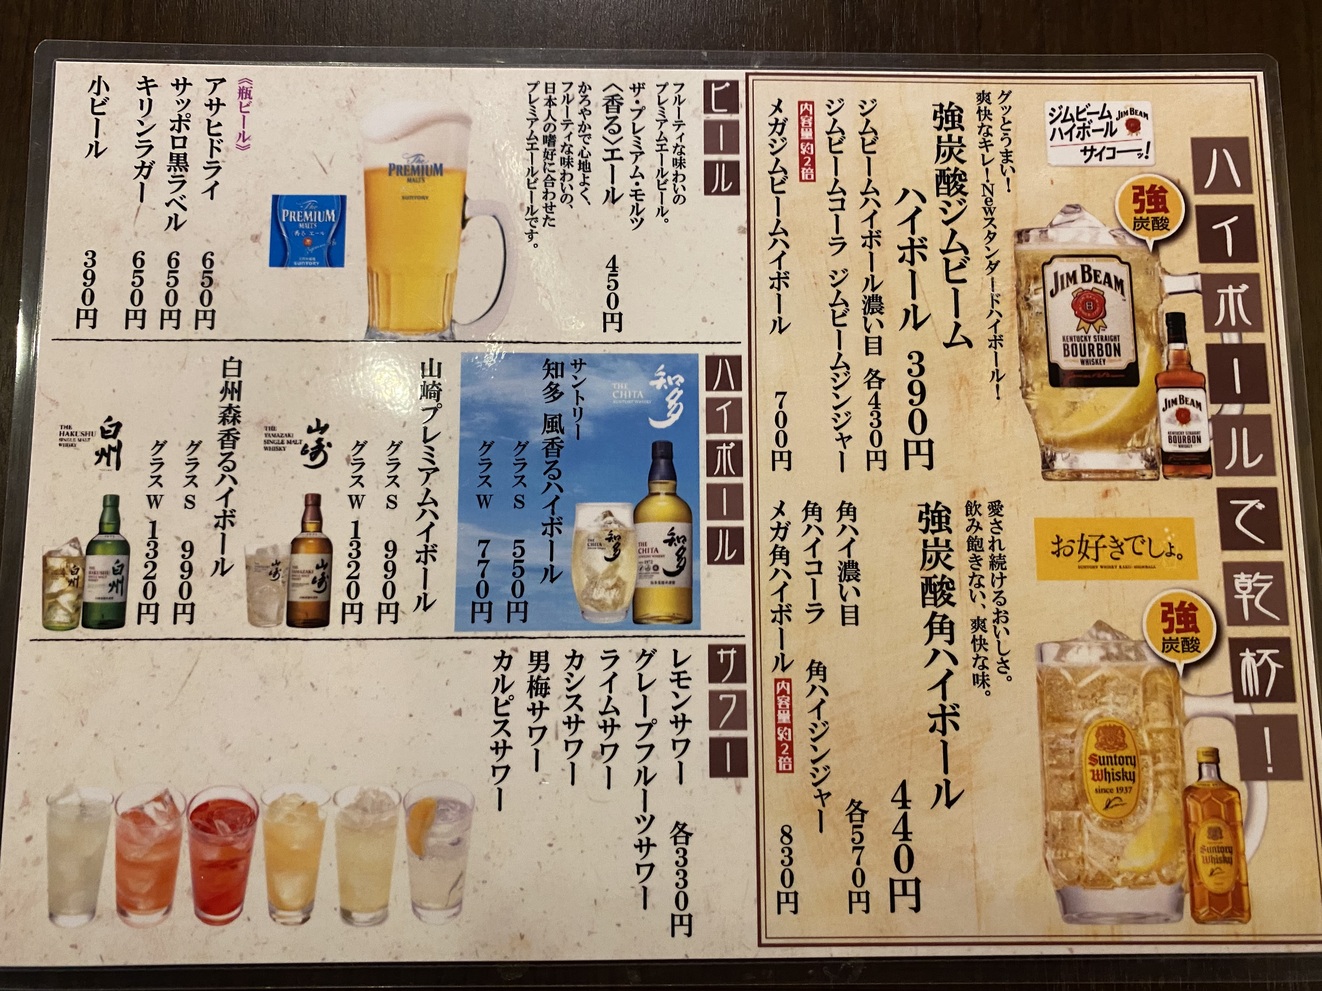 ハイボールで乾杯！
ジムビーム
ハイボール
サイコーッ！
JIM BEAM
強
炭酸
JIM BEAM
KENTUCKY STRAIGHT
BOURBON
WHISKEY
JIM BEAM
KENTUCKY STRAIGHT
BOURBON
WHISKEY
グッとうまい！
爽快なキレ！Newスタンダードハイボール！
強炭酸ジムビーム
ハイボール 390円
ジムビームハイボール濃い目 各430円
ジムビームコーラ ジムビームジンジャー
内容量約2倍
メガジムビームハイボール 700円
お好きでしょ。
強
炭酸
Suntory
Whisky
since 1937
Suntory
Whisky
愛され続けるおいしさ。
飲み飽きない、爽快な味。
強炭酸角ハイボール 440円
角ハイ濃い目
角ハイコーラ 角ハイジンジャー 各570円
メガ角ハイボール 内容量約2倍 830円
ビール
フルーティな味わいの
プレミアムエールビール。
ザ・プレミアム・モルツ
〈香る〉エール 450円
かろやかで心地よく、
フルーティな味わいの、
日本人の嗜好に合わせた
プレミアムエールビールです。
The
PREMIUM
MALT'S
SUNTORY
The
PREMIUM
MALT'S
香るエール
SUNTORY
《瓶ビール》
アサヒドライ 650円
サッポロ黒ラベル 650円
キリンラガー 650円
小ビール 390円
ハイボール
知多
THE
CHITA
SUNTORY WHISKY
知多
THE
CHITA
知多
サントリー
知多 風香るハイボール
グラスS 550円
グラスW 770円
山崎プレミアムハイボール
グラスS 990円
グラスW 1320円
山崎
THE
YAMAZAKI
SINGLE MALT
WHISKY
山崎
白州森香るハイボール
グラスS 990円
グラスW 1320円
白州
THE
HAKUSHU
SINGLE MALT
WHISKY
白州
サワー
レモンサワー 各330円
グレープフルーツサワー
ライムサワー
カシスサワー
男梅サワー
カルピスサワー